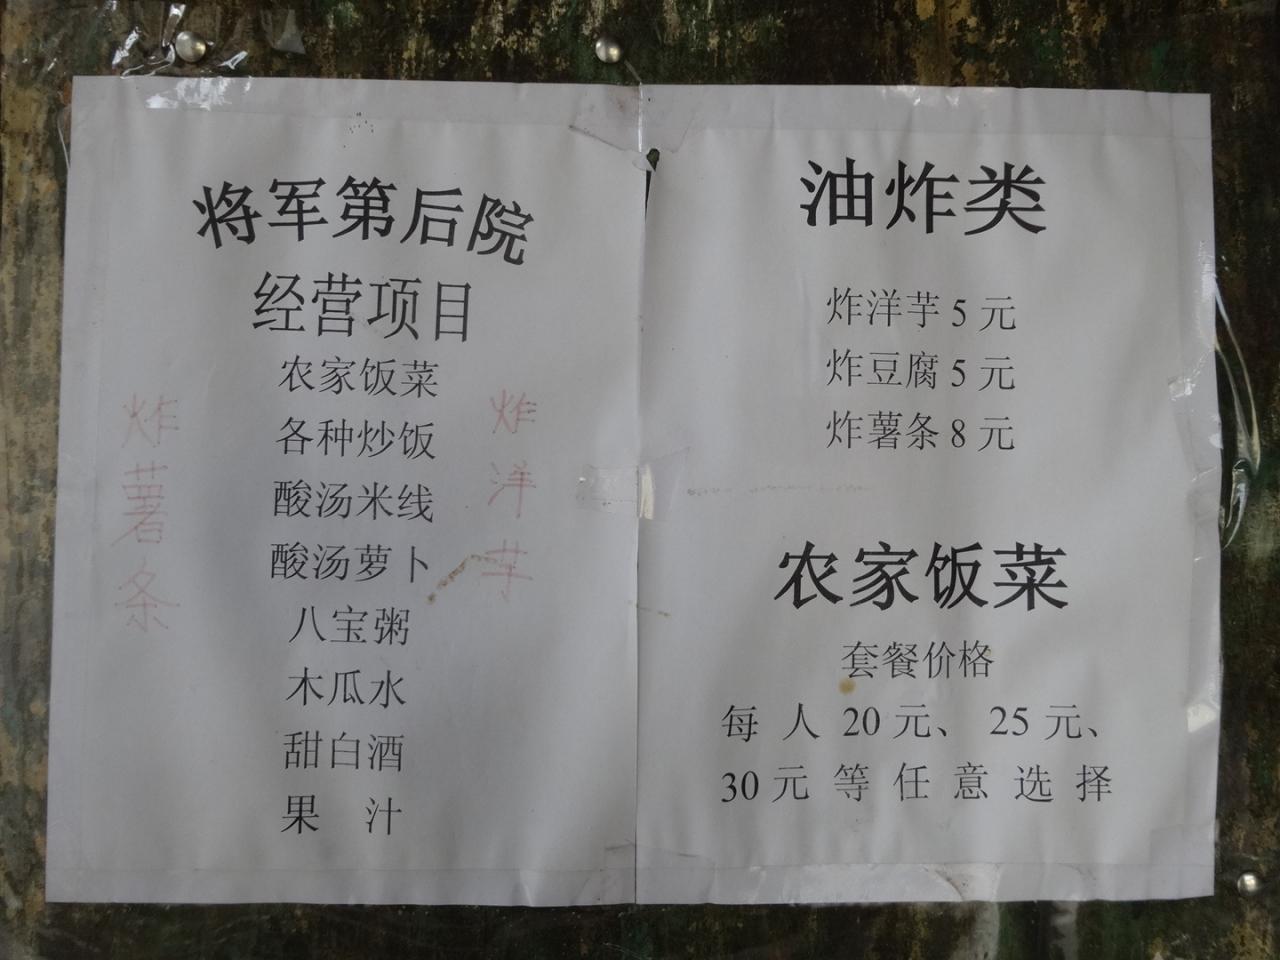 将军第后院
经营项目
农家饭菜
各种炒饭
酸汤米线
酸汤萝卜
八宝粥
木瓜水
甜白酒
果 汁
炸薯条
炸洋芋
油炸类
炸洋芋 5 元
炸豆腐 5 元
炸薯条 8 元
农家饭菜
套餐价格
每 人 20 元、 25 元、
30 元 等 任 意 选 择